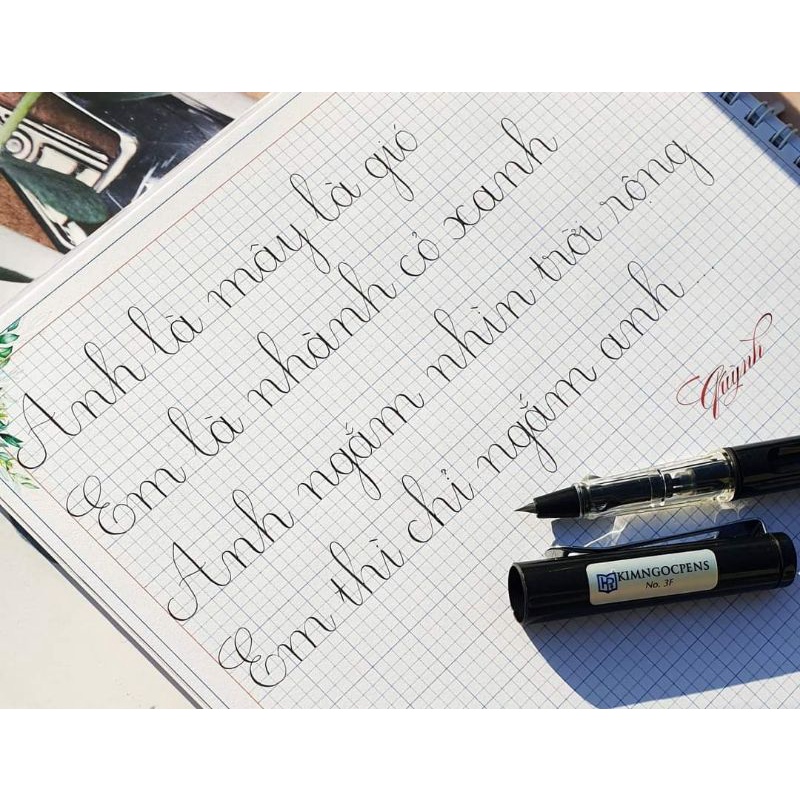 Anh là mây là gió
Em là nhành cỏ xanh
Anh ngắm nhìn trời rộng
Em thì chỉ ngắm anh ...
Quỳnh
KIMNGOCPENS
No. 3F